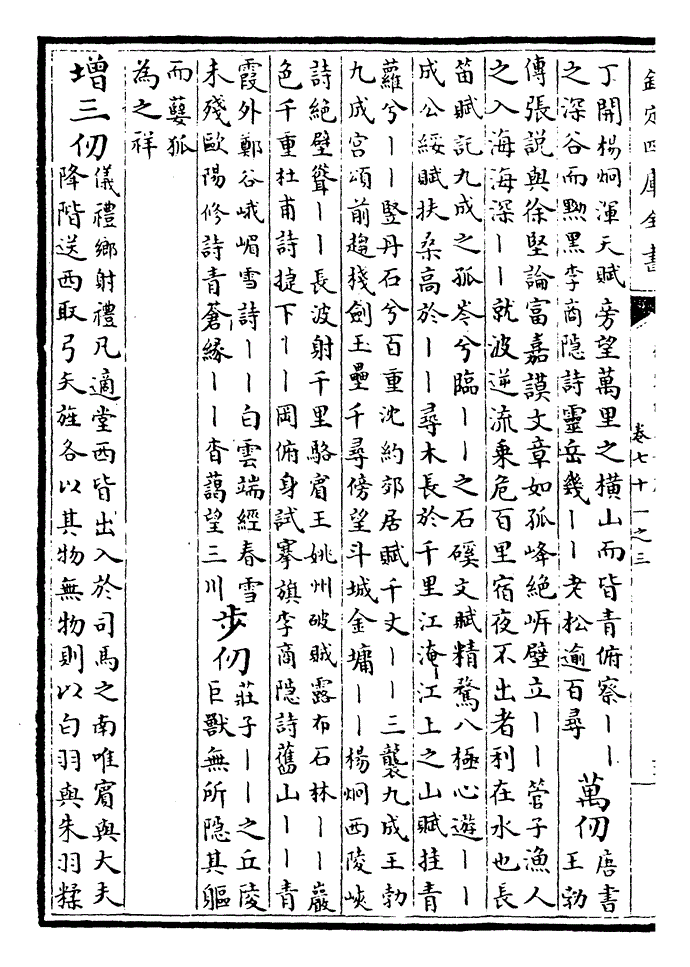 欽定四庫全書
卷七十一之三
丁開楊炯渾天賦旁望萬里之横山而皆青俯察丨丨
之深谷而黝黑李商隐詩靈岳幾丨丨老松逾百尋
萬仞
唐書
王勃
傳張説與徐堅論富嘉謨文章如孤峰絶岍壁立丨丨管子漁人
之入海海深丨丨就波逆流乗危百里宿夜不出者利在水也長
笛賦記九成之孤岑兮臨丨丨之石磎文賦精騖八極心遊丨丨
成公綏賦扶桑高於丨丨尋木長於千里江淹江上之山賦挂青
蘿兮丨丨竪丹石兮百重沈約郊居賦千丈丨丨三襲九成王勃
九成宫頌前趨棧劍玉壘千尋傍望斗城金墉丨丨楊炯西陵峽
詩絶壁聳丨丨長波射千里駱賓王姚州破賊露布石林丨丨巖
色千重杜甫詩捷下丨丨岡俯身試搴旗李商隐詩舊山丨丨青
霞外鄭谷峨嵋雪詩丨丨白雲端經春雪
未殘歐陽修詩青蒼緣丨丨杳藹望三川
步仞
莊子丨丨之丘陵
巨獸無所隐其軀
而㜸狐
為之祥
增三仞
儀禮鄉射禮凡適堂西皆出入於司馬之南唯賓與大夫
降階送西取弓矢旌各以其物無物則以白羽與朱羽糅